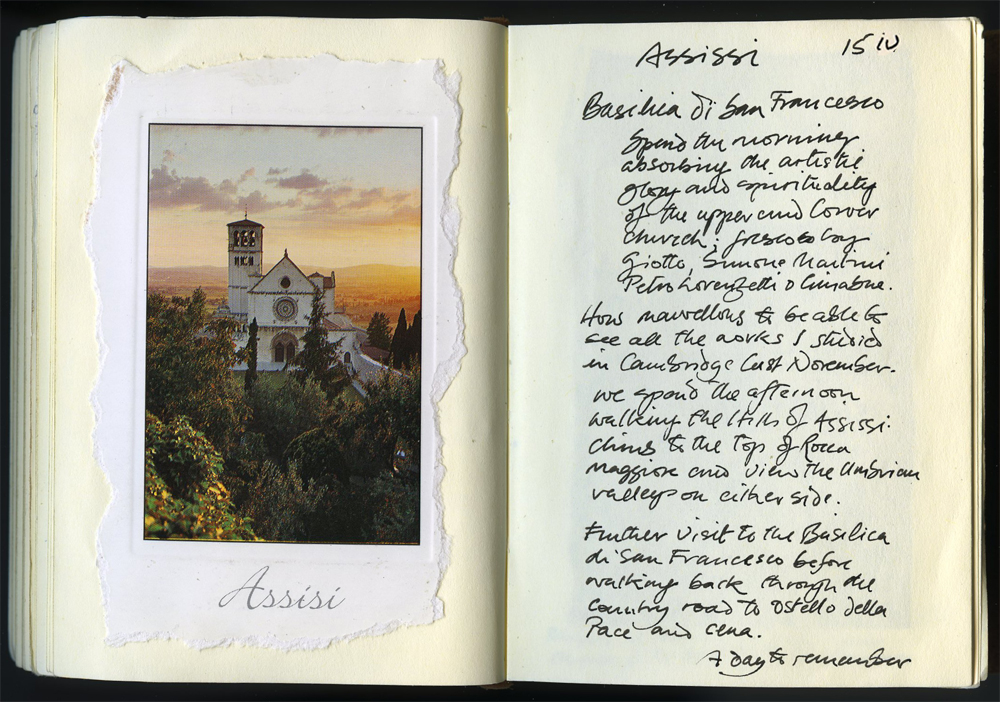 Assisi
Assissi
15 iv
Basilica di San Francesco
Spend the morning
absorbing the artistic
glory and spirituality
of the upper and lower
church; frescoes by
Giotto, Simone Martini
Petro Lorenzetti & Cimabue.
How marvellous to be able to
see all the works I studied
in Cambridge last November.
We spend the afternoon
walking the Hills of Assissi.
Climb to the top of Rocca
Maggiore and view the Umbrian
valleys on either side.
Further visit to the Basilica
di San Francesco before
walking back through the
country road to Ostello della
Pace and cena.
A day to remember